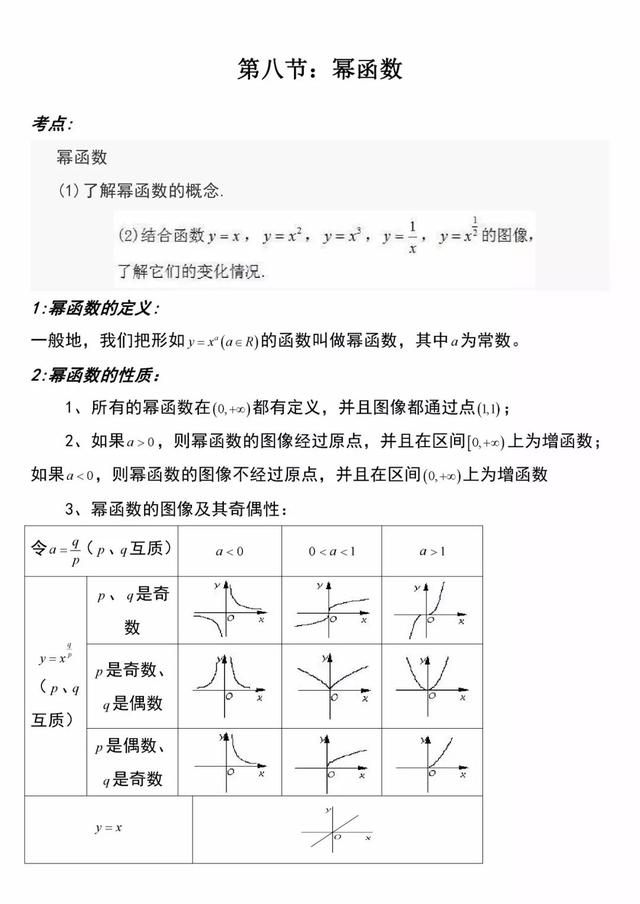 第八节：幂函数
考点:
幂函数
(1)了解幂函数的概念.
(2)结合函数 y = x，y = x²，y = x³，y = 1/x，y = x^(1/2) 的图像，
了解它们的变化情况.
1:幂函数的定义:
一般地，我们把形如 y = xᵃ(a∈R)的函数叫做幂函数，其中a为常数。
2:幂函数的性质：
1、所有的幂函数在(0,+∞)都有定义，并且图像都通过点(1,1)；
2、如果a>0，则幂函数的图像经过原点，并且在区间[0,+∞)上为增函数；
如果a<0，则幂函数的图像不经过原点，并且在区间(0,+∞)上为增函数
3、幂函数的图像及其奇偶性：
令a = q/p（p、q互质） a<0 0<a<1 a>1
y = x^(q/p)
（p、q
互质）
p、q是奇
数
y O x y O x y O x
p是奇数、
q是偶数
y O x y O x y O x
p是偶数、
q是奇数
y O x y O x y O x
y = x y O x